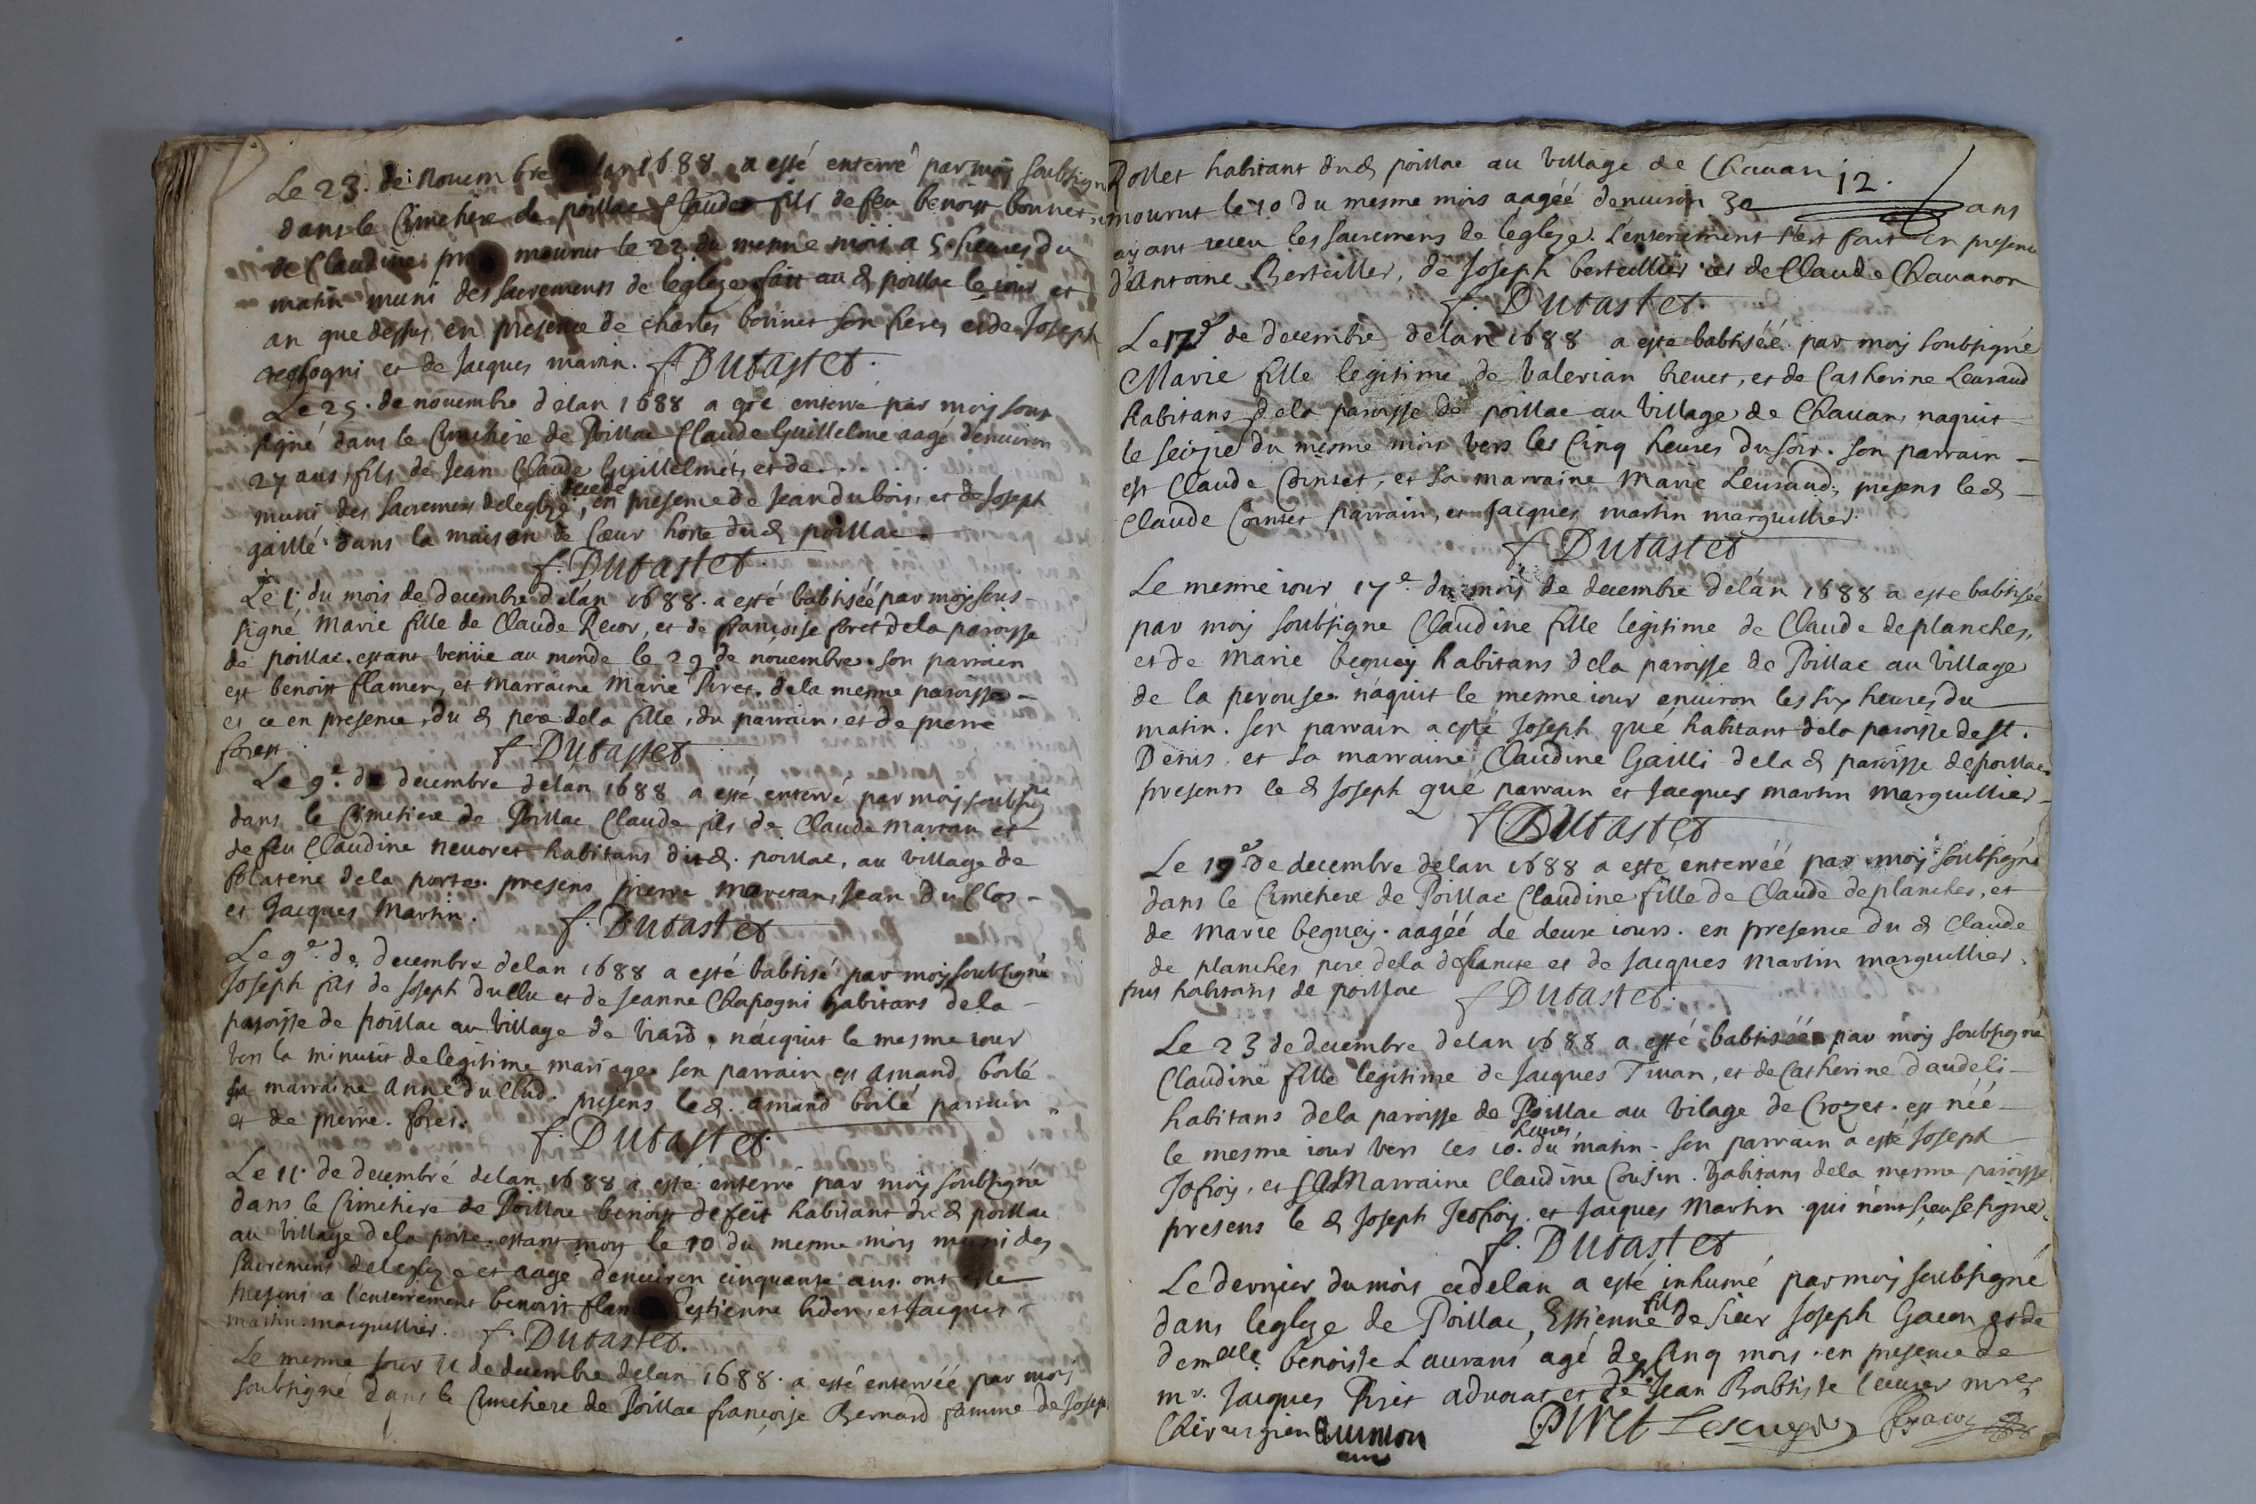 Le 23. de novembre de lan 1688 a esté enterré par moy soubsigné
dans le Cimetiere de poillac Claude fils de feu benoist bonnet
de Claudine mourut le 22 du mesme mois a 5. heures du
matin muni des sacrements de leglize fait au d poillac le iour et
an que dessus en presence de charles bonnet son frere, et de Joseph
et de Jacques martin. f. Dutastet.
Le 25. de novembre de lan 1688 a esté enterré par moy soub
signé dans le Cimetiere de Poillac Claude Guillelme aagé d'environ
27 ans, fils de Jean Claude Guillelmet, et de . . . . .
muni des sacremens de leglize, en presence de Jean dubois, et de Joseph
gaillé dans la maison de Cœur forte du d poillac.
f. Dutastet
Le 1. du mois de decembre de lan 1688. a esté babtiséé par moy sous-
signé Marie fille de Claude Recor, et de françoise foret de la paroisse
de poillac. estant venüe au monde le 29 de novembre. son parrain
est benoist flamen, et Marraine Marie Piret. de la mesme paroisse -
et ce en presence, du d pere de la fille, du parrain, et de pierre
forest f. Dutastet
Le 9e. de decembre de lan 1688 a esté enterré par moy soubsigné
dans le Cimetiere de Poillac Claude fils de Claude martan et
de feu Claudine nevoret habitans du d. poillac, au village de
Platene de la porte. presens pierre martan, Jean du Clos -
et Jacques Martin. f. Dutastet
Le 9e. de decembre de lan 1688 a esté babtisé par moy soubsigné
Joseph fils de Joseph dullu et de Jeanne Chapogni habitans de la -
paroisse de poillac au village de viard. nacquit le mesme iour
vers la minuit de legitime mariage. son parrain est amand borlé
sa marraine anne du Clud. presens le d. amand borlé parrain
et de pierre. foret. f. Dutastet.
Le 11. de decembre de lan 1688 a esté enterré par moy soubsigné
dans le Cimetiere de Poillac benoist defeit habitant du d poillac
au village de la porte. estant mort le 10 du mesme mois muni des
sacremens de leglize et aagé d'environ cinquante ans. ont esté
presens a l'enterrement benoist estienne et Jacques
martin marguillier. f. Dutastet.
Le mesme jour 11 de decembre de lan 1688. a esté enterréé par moy
soubsigné dans le Cimetiere de Poillac françoise Bernard famme de Joseph
Rollet habitant du d poillac au village de Chavan
12.
mourut le 10 du mesme mois aagéé denviron 30 ans
ayant receu les sacremens de léglize. L'enterement s'est fait en presence
d'Antoine Berteiller, de Joseph berteillier et de Claude Chavanon
f. Dutastet.
Le 17e de decembre de lan 1688 a esté babtiséé par moy soubsigné
Marie fille legitime de Valerian brevet, et de Catherine Levraud
habitans de la paroisse de poillac au village de Chavan, naquit
le seizie du mesme mois vers les Cinq heures du soir. son parrain -
est Claude Cointet, et sa marraine Marie Levraud, presens le d -
Claude Cointet parrain, et Jacques martin marguillier.
f. Dutastet
Le mesme iour 17e. du mois de decembre de lan 1688 a esté babtiséé
par moy soubsigné Claudine fille legitime de Claude deplanches,
et de Marie beguey habitans de la paroisse de Poillac au village
de la perouse. naquit le mesme iour environ les six heures du
matin. son parrain a esté Joseph qué habitant de la paroisse de st.
Denis, et sa marraine Claudine Gailli de la d paroisse de poillac
presents le d Joseph qué parrain et Jacques martin marguillier -
f. Dutastet
Le 19e de decembre de lan 1688 a esté enterréé par moy soubsigné
dans le Cimetiere de Poillac Claudine fille de Claude deplanches, et
de Marie beguey. aagéé de deux iours. en presence du d Claude
de planches pere de la defuncte et de Jacques martin marguillier,
tous habitans de poillac f. Dutastet.
Le 23 de decembre de lan 1688 a esté babtiséé par moy soubsigné
Claudine fille legitime de Jacques Tivan, et de Catherine daudeli -
habitans de la paroisse de Poillac au vilage de Crozet. est néé -
le mesme iour vers les 10. heures du matin - son parrain a esté Joseph
Jofroy, et sa Marraine Claudine Cousin. habitans de la mesme paroisse
presens le d Joseph Jeofroy. et Jacques Martin qui n'ont sceu signer.
f. Dutastet
Le dernier du mois et de lan a esté inhumé par moy soubsigné
dans leglize de Poillac, Estienne fils de sieur Joseph Gacon et de
demelle. benoiste Laurans agé de Cinq mois. en presence de
mr. Jacques Piret advocat et de Jean Babtiste mre
Chirurgien
Piret